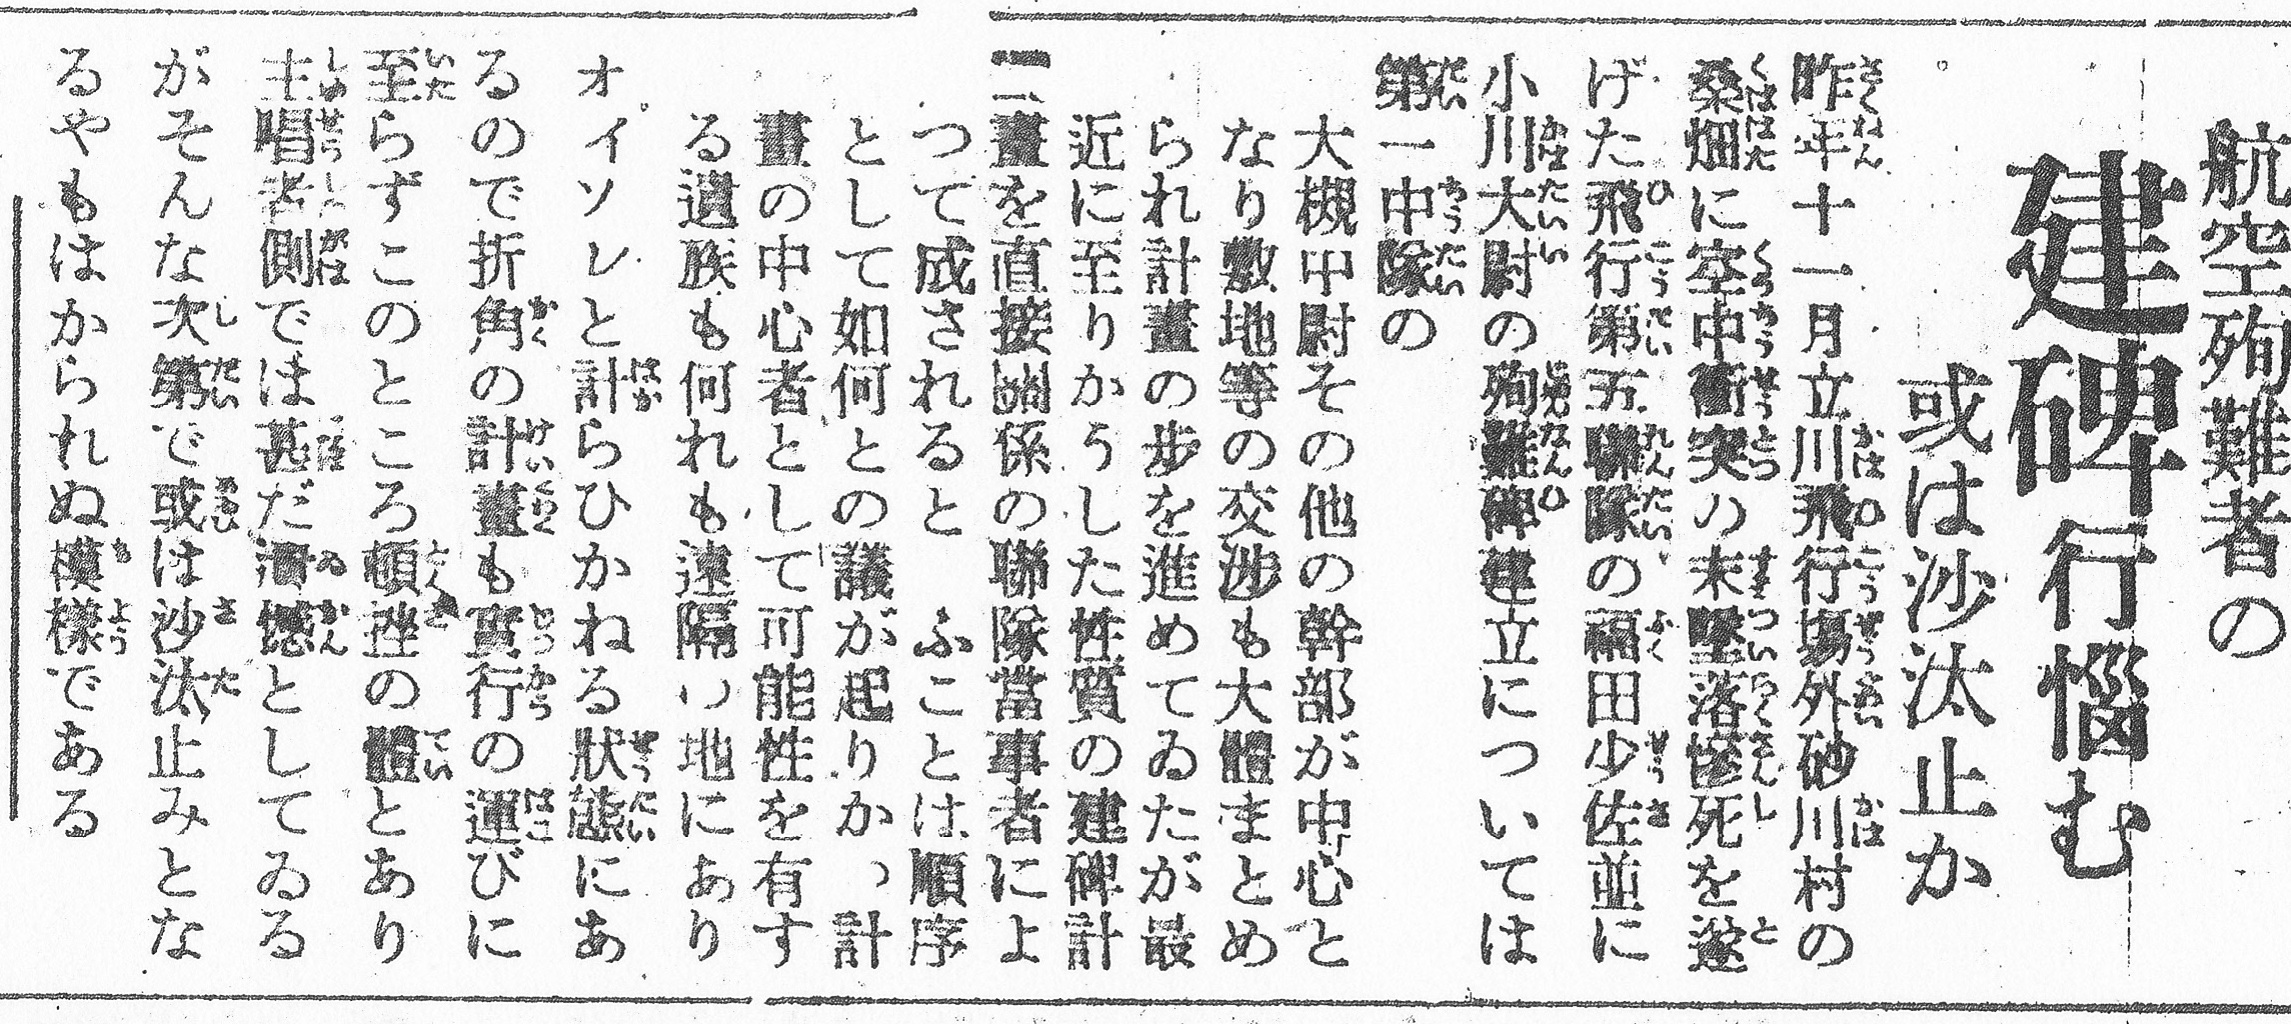 航空殉難者の
建碑行惱む
或は沙汰止か
昨年十一月立川飛行場外砂川村の
桑畑に空中衝突の末墜落慘死を遂
げた飛行第五聯隊の福田少佐並に
小川大尉の殉難碑建立については
第一中隊の
大槻中尉その他の幹部が中心と
なり敷地等の交渉も大體まとめ
られ計畫の步を進めてゐたが最
近に至りかうした性質の建碑計
畫を直接關係の聯隊當事者によ
つて成されるとふことは順序
として如何との議が起りか、計
畫の中心者として可能性を有す
る遺族も何れも遠隔い地にあり
オイソレと計らひかねる狀態にあ
るので折角の計畫も實行の運びに
至らずこのところ頓挫の體とあり
主唱者側では甚だ遺憾としてゐる
がそんな次第で或は沙汰止みとな
るやもはかられぬ模樣である